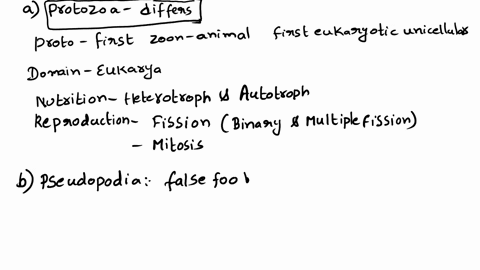 a) Protozoa - differs
Proto - first zoon-animal first eukaryotic unicellular
Domain - Eukarya
Nutrition - Heterotroph & Autotroph
Reproduction - Fission (Binary & Multiple fission)
- Mitosis
b) Pseudopodia:- false foo